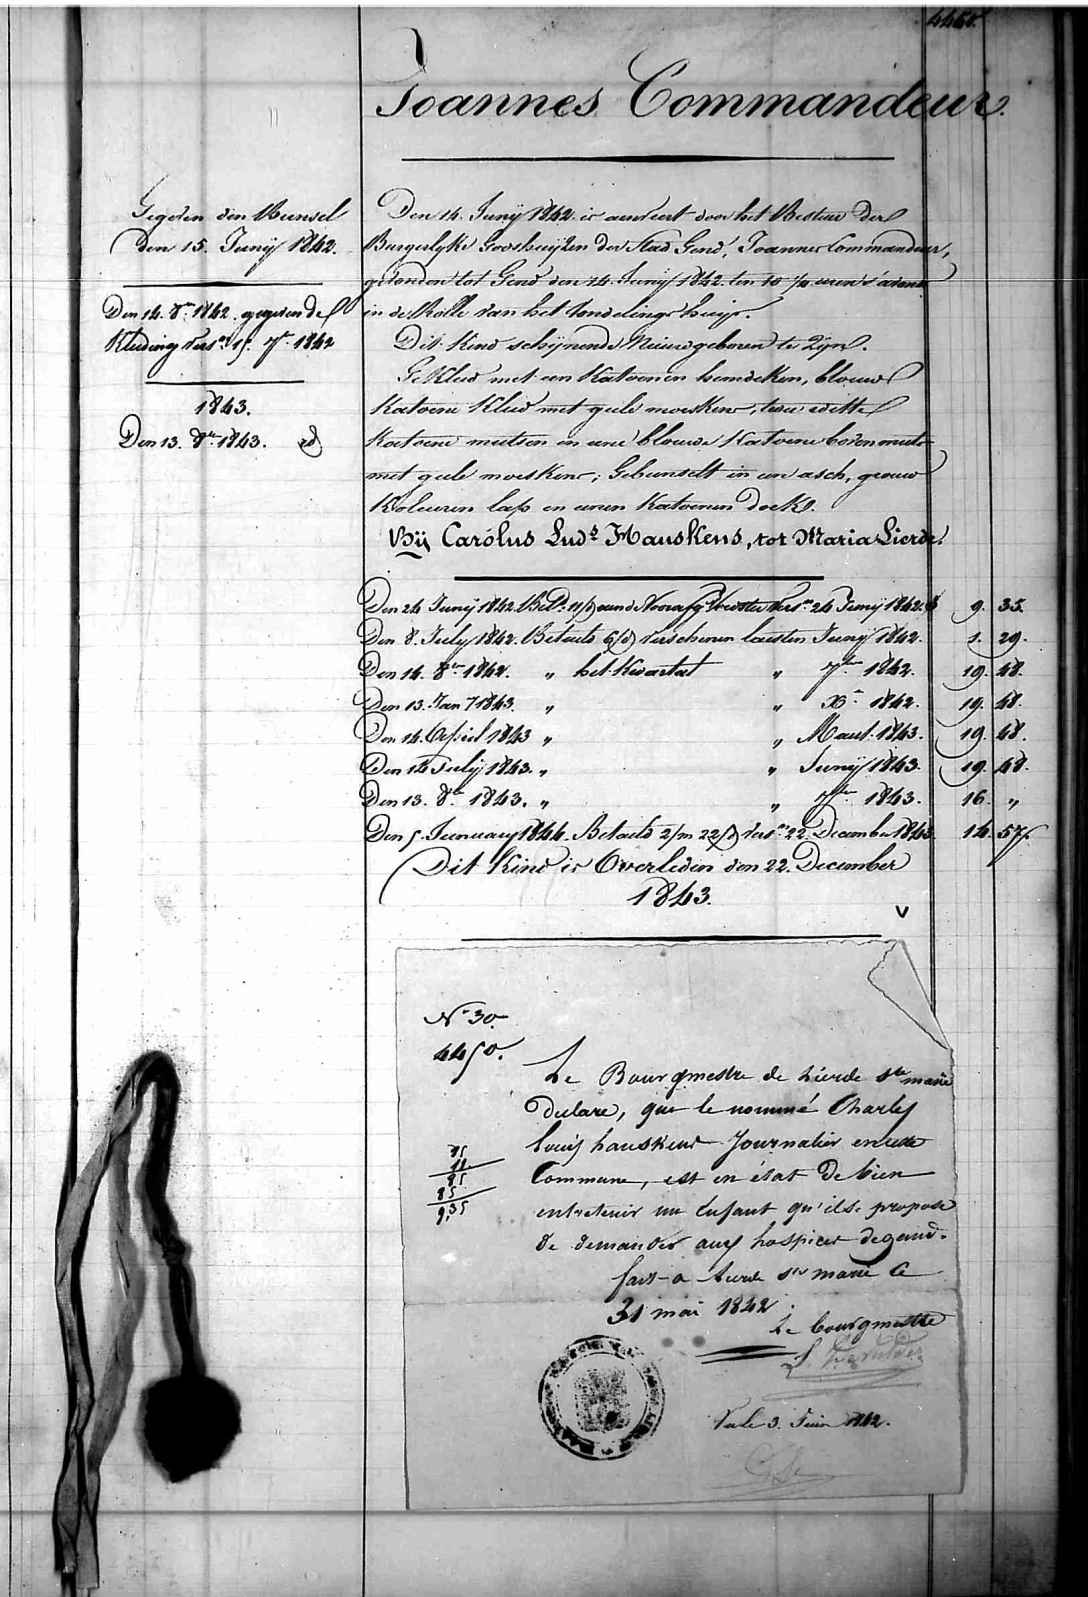 4450.
Joannes Commandeur.
Gegeven den Bunsel
den 15. Junij 1842.
Den 14. 8er 1842. gegeven de
Kleding vers. 1e. 7r 1842
1843.
Den 13. 8er 1843.
Den 14. Junij 1842. is aenveert door het Bestuer der
Burgerlyke Godshuijzen der Stad Gend, Joannes Commandeur,
gevonden tot Gend den 14. Junij 1842. ten 10 uren s'avonds
in de Rolle van het Vondelings huijs.
Dit kind schijnende Nieuwgeboren te Zijn.
Gekleed met een Katoenen hemdeken, blouw
Katoene Kleed met geele moeskens, twee witte
Katoene mutsen en eene blouwe Katoene bovenmuts
met geele moeskens; Gebunselt in een asch, grouw
Koleuren lap en eenen Katoenen doek.
Bij Carolus Luds Hauskens, tot Maria Lierde.
Den 24 Junij 1842. 24 Junij 1842. 9. 35.
Den 8. July 1842. Betaeld 6/d verschenen laesten Junij 1842. 1. 29.
Den 14. 8er 1842. " het Kwartael " 7ber 1842. 19. 48.
Den 13. Jan 1843. " " Xr 1842. 19. 48.
Den 14. April 1843 " " Maert 1843. 19. 48.
Den 14 July 1843. " " Junij 1843. 19. 48.
Den 13. 8er 1843. " " 7ber 1843. 16. "
Den 5. January 1844. Betaeld 2/m 22/d vers. 22. December 1843. 14. 57.
Dit kind is Overleden den 22. December
1843.
V
No 30.
4450.
Le Bourgmestre de Lierde Ste marie
declare, que le nommé Charles
Louis hauskens Journalier en cette
Commune, est en état de bien
entretenir un Enfant qu'il se propose
de demander aux hospices de gand.
fait a Lierde Ste marie Ce
31 mai 1842.
Le bourgmestre
Vu le 3. Juin 1842.
85
85
9,35